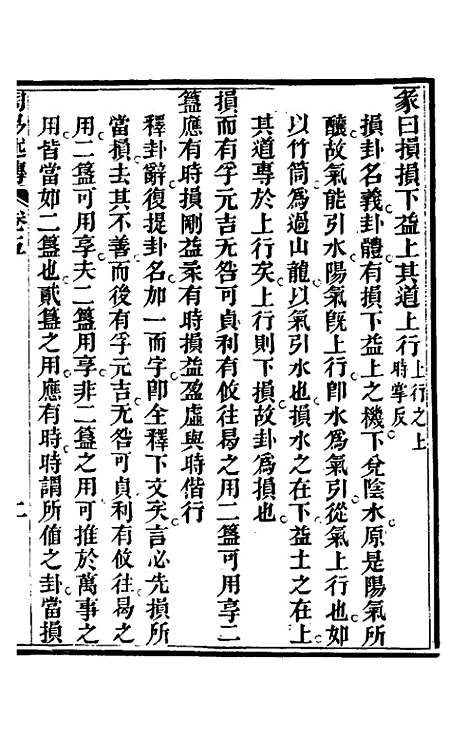 彖曰損損下益上其道上行上行之上時掌反
損卦名義卦體有損下益上之機下兌陰水原是陽氣所
釀故氣能引水陽氣旣上行卽水為氣引從氣上行也如
以竹筒為過山龍以氣引水也損水之在下益土之在上
其道專於上行矣上行則下損故卦為損也
損而有孚元吉无咎可貞利有攸往曷之用二簋可用享二
簋應有時損剛益柔有時損益盈虛與時偕行
釋卦辭復提卦名加一而字卽全釋下文矣言必先損所
當損去其不善而後有孚元吉无咎可貞利有攸往曷之
用二簋可用享夫二簋用享非二簋之用可推於萬事之
用皆當如二簋也貳簋之用應有時時謂所値之卦當損
周易述傳
卷五
二